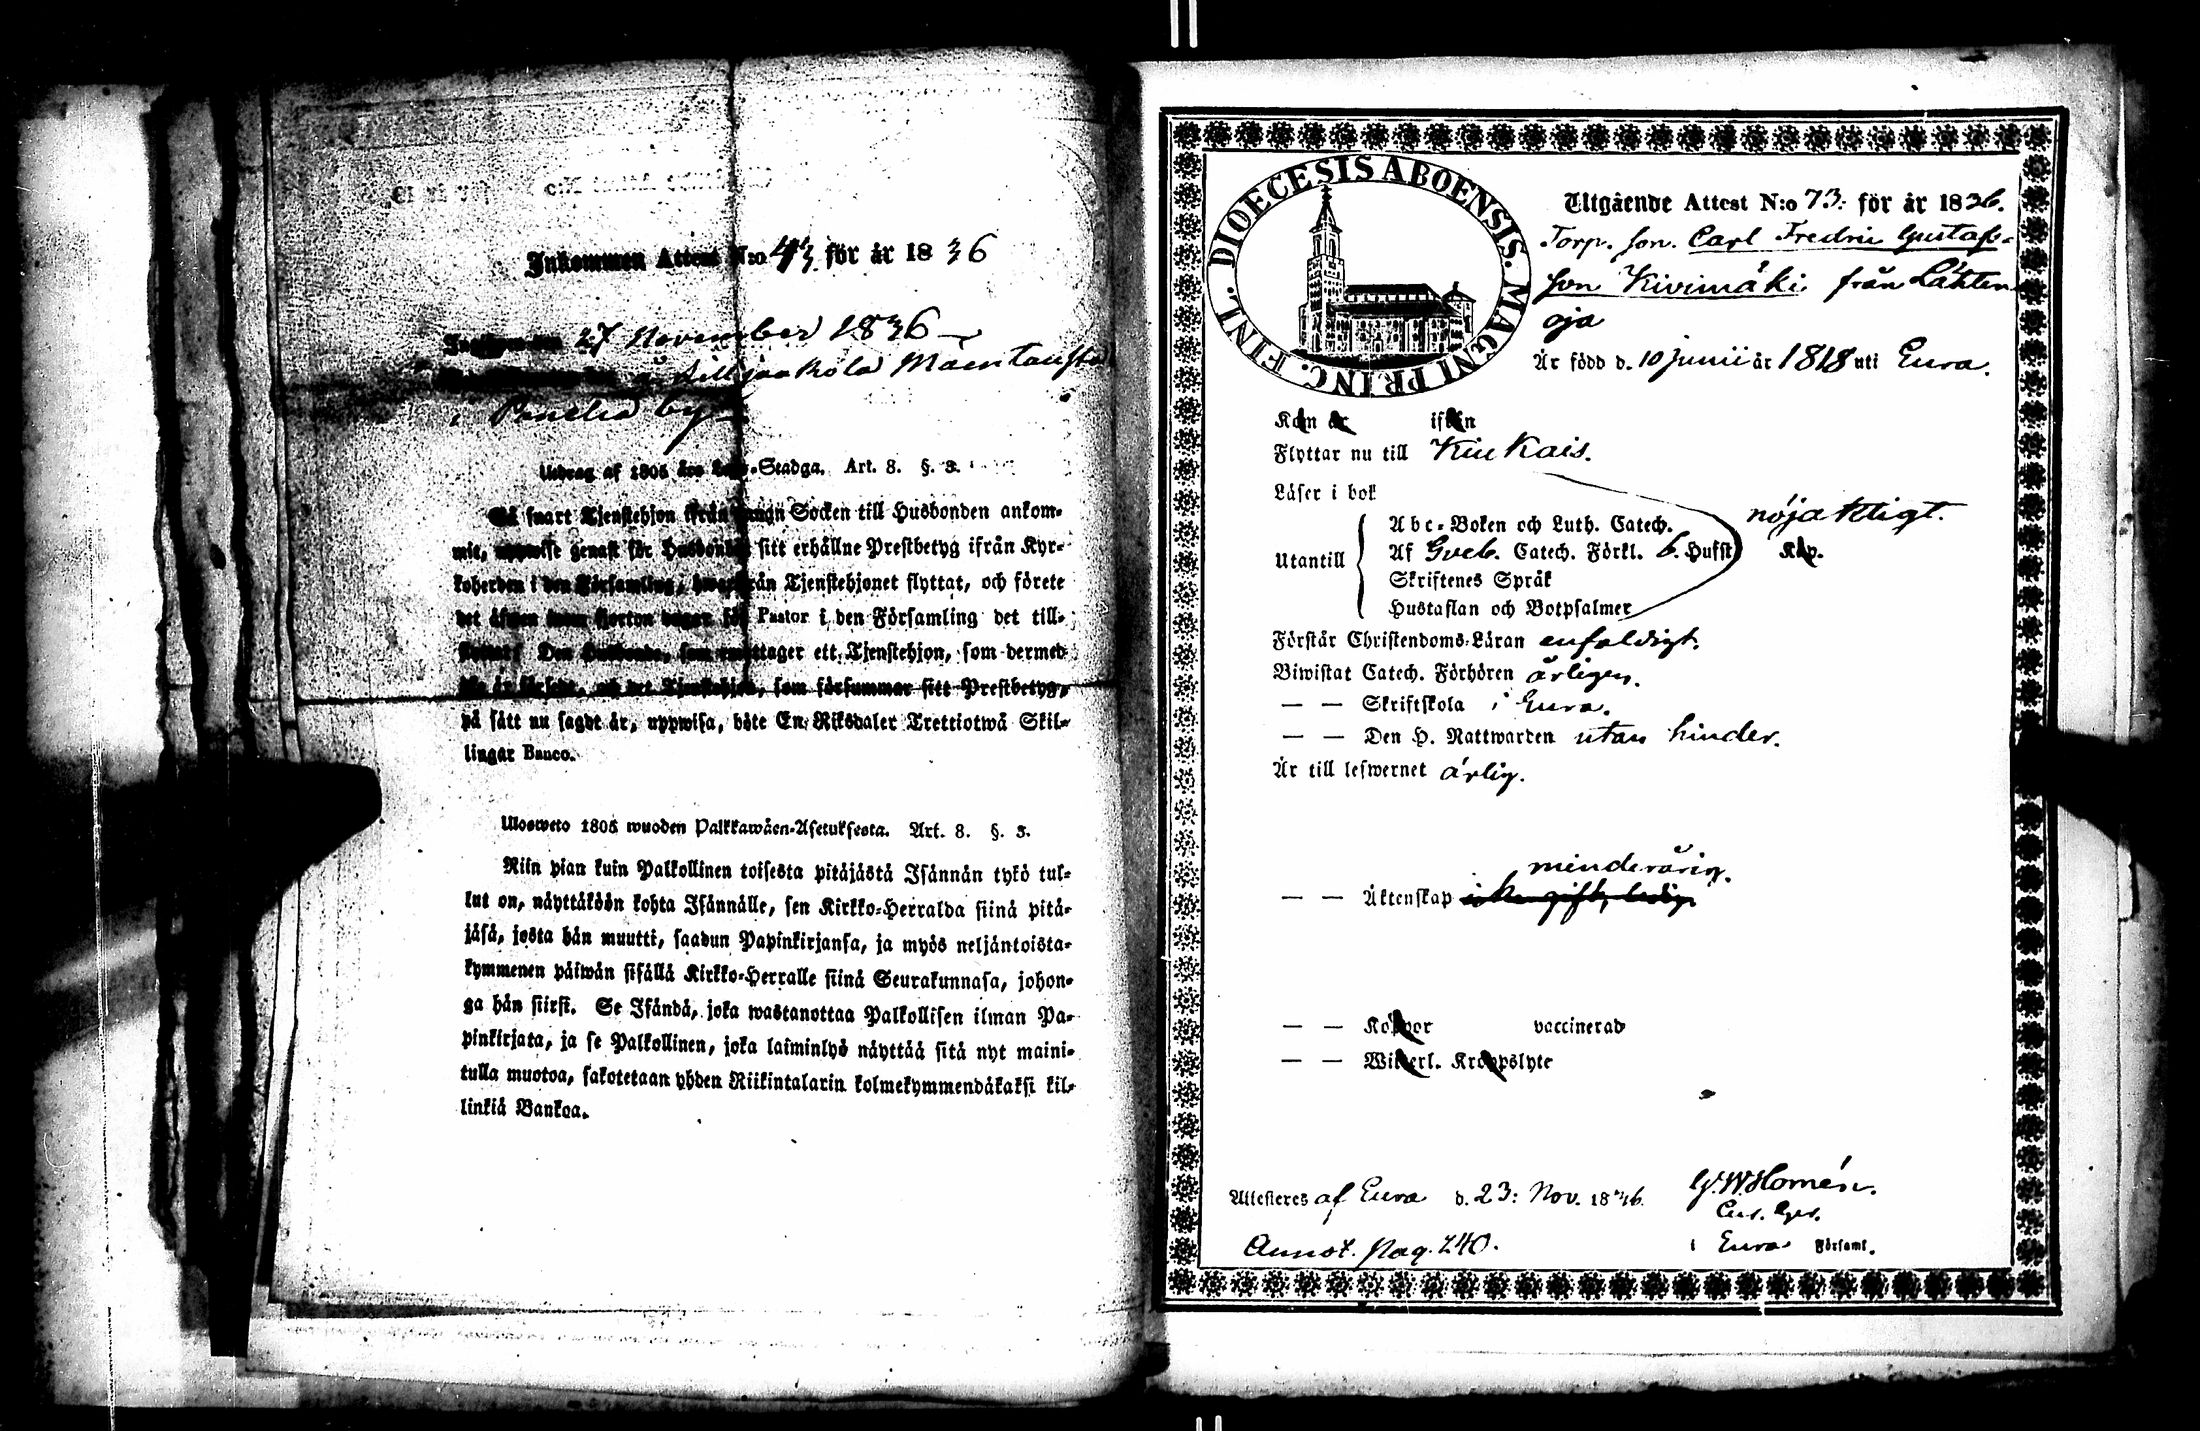 Inkommen Attest N:o 43. för år 1836
27 November 1836
å Lilljaakola
i Panelia by
Utdrag af 1805 års Lego-Stadga. Art. 8. §. 3.
Så snart Tjenstehjon ifrån annan Socken till Husbonden ankom-
mit, uppwise genast för Husbonden sitt erhållne Prestbetyg ifrån Kyr-
koherden i den Församling, hwarifrån Tjenstehjonet flyttat, och förete
det äfwen inom fjorton dagar för Pastor i den Församling det till-
flyttat. Den Husbonde, som emottager ett Tjenstehjon, som dermed
ej är försedt, och det Tjenstehjon, som försummar sitt Prestbetyg,
på sätt nu sagdt är, uppwisa, böte En Riksdaler Trettiotwå Skil-
lingar Banco.
Ulosweto 1805 wuoden Palkkawäen-Asetuksesta. Art. 8. §. 3.
Niin pian kuin Palkollinen toisesta pitäjästä Isännän tykö tul-
lut on, näyttäköön kohta Isännälle, sen Kirkko-Herralda siinä pitä-
jäsä, josta hän muutti, saadun Papinkirjansa, ja myös neljäntoista-
kymmenen päiwän sisällä Kirkko-Herralle siinä Seurakunnasa, johon-
ga hän siirsi. Se Isändä, joka wastanottaa Palkollisen ilman Pa-
pinkirjata, ja se Palkollinen, joka laiminlyö näyttää sitä nyt maini-
tulla muotoa, sakotetaan yhden Riikintalarin kolmekymmendäkaksi kil-
linkiä Bankoa.
DIOECESIS ABOENSIS. MAGNI PRINC. FINL.
Utgående Attest N:o 73. för år 1836.
Torp. son. Carl Fredric Gustafs-
son Kivimäki från Lähten
oja
Är född d. 10 Junii år 1818 uti Eura.
Kon är ifrån
Flyttar nu till Kiukais.
Läser i bok
Abc-Boken och Luth. Catech. nöjaktigt.
Utantill Af Sveb. Catech. Förkl. 6. Hufst. Kap.
Skriftenes Språk
Hustaflan och Botpsalmer
Förstår Christendoms-Läran enfaldigt.
Biwistat Catech. Förhören årligen.
— — Skriftskola i Eura.
— — Den H. Nattwarden utan hinder.
Är till lefwernet ärlig.
minderårig.
— — Äktenskap
— — Koppor vaccinerad
— — Widerl. Kroppslyte
Attesteres af Eura d. 23: Nov. 1836. G. W. Homén.
Annot. pag. 240. i Eura Församl.